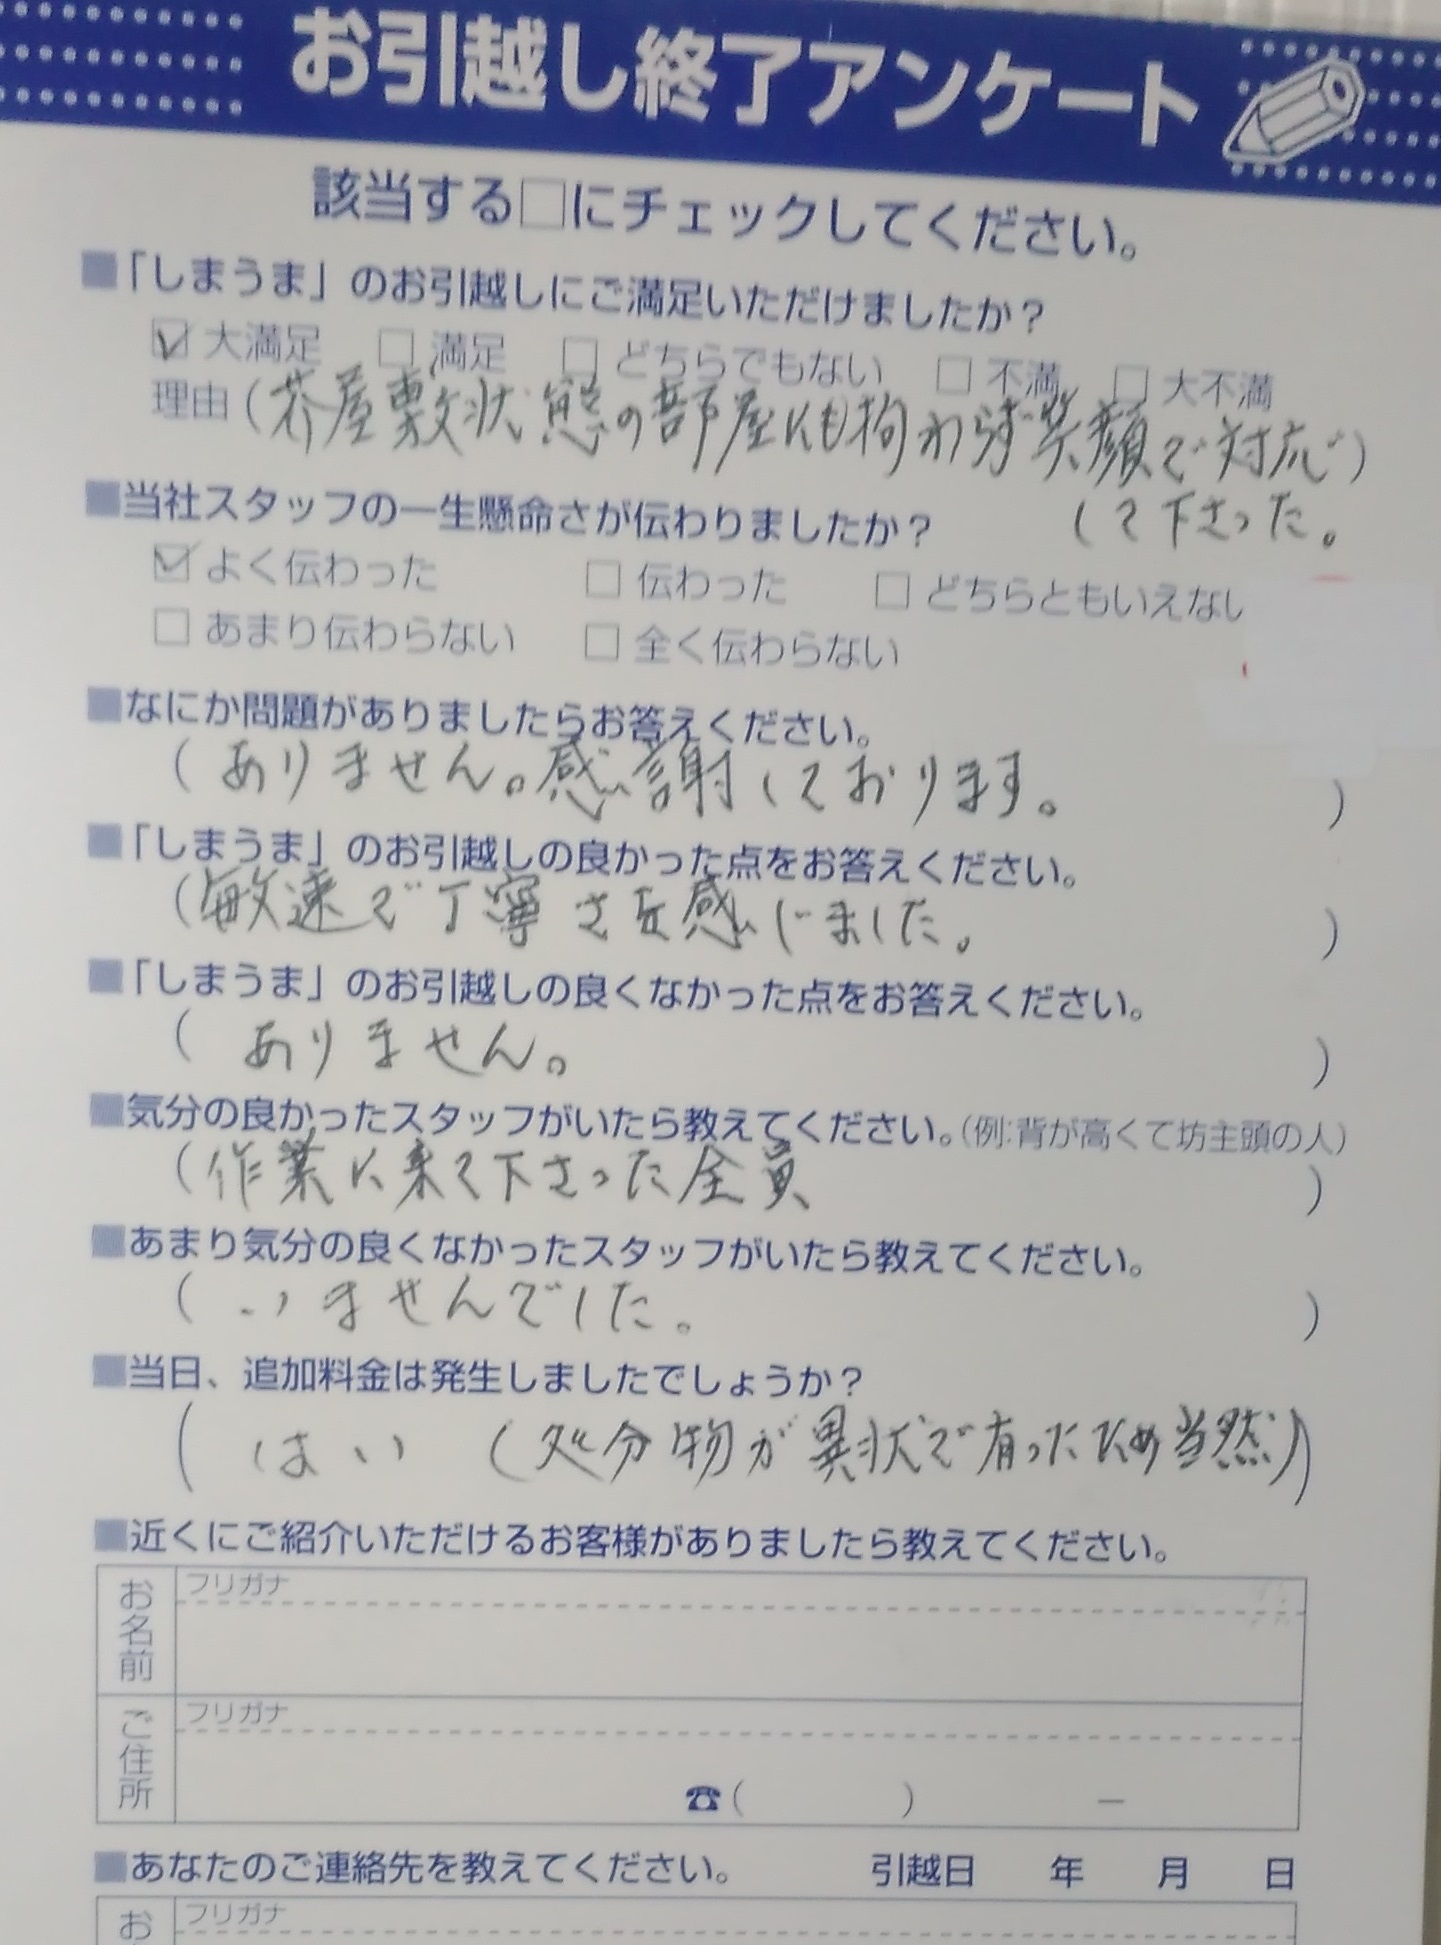 お引越し終了アンケート
該当する□にチェックしてください。
■「しまうま」のお引越しにご満足いただけましたか？
☑大満足 □満足 □どちらでもない □不満 □大不満
理由(芥屋敷状態の部屋にも拘わらず笑顔で対応)
して下さった。
■当社スタッフの一生懸命さが伝わりましたか？
☑よく伝わった □伝わった □どちらともいえない
□あまり伝わらない □全く伝わらない
■なにか問題がありましたらお答えください。
(ありません。感謝しております。)
■「しまうま」のお引越しの良かった点をお答えください。
(敏速で丁寧さを感じました。)
■「しまうま」のお引越しの良くなかった点をお答えください。
(ありません。)
■気分の良かったスタッフがいたら教えてください。(例:背が高くて坊主頭の人)
(作業に来て下さった全員)
■あまり気分の良くなかったスタッフがいたら教えてください。
(いませんでした。)
■当日、追加料金は発生しましたでしょうか？
(はい (処分物が異状で有ったため当然))
■近くにご紹介いただけるお客様がありましたら教えてください。
お名前 フリガナ
ご住所 フリガナ
☎( ) ―
■あなたのご連絡先を教えてください。 引越日 年 月 日
お フリガナ